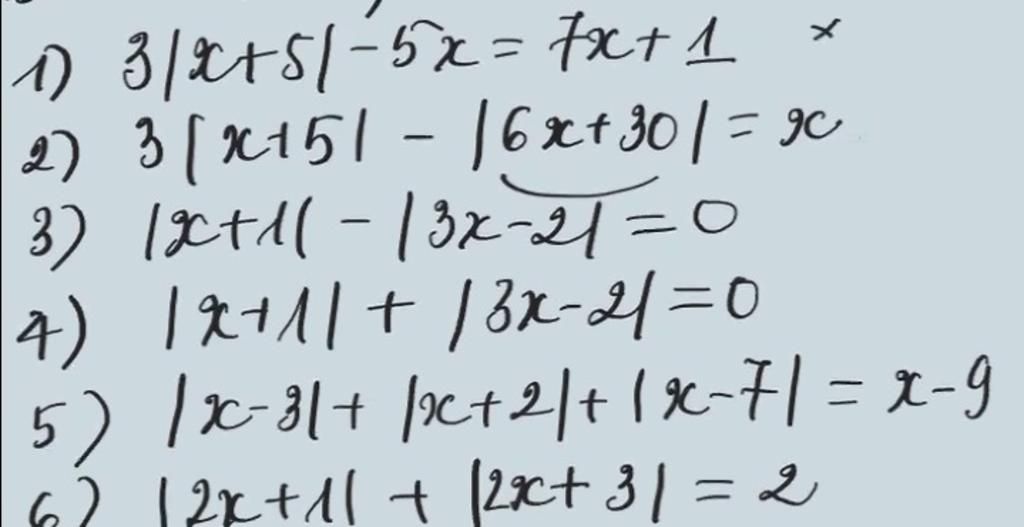 1) 3|x+5| - 5x = 7x + 1 ×
2) 3|x+5| - |6x+30| = x
3) |x+1| - |3x-2| = 0
4) |x+1| + |3x-2| = 0
5) |x-3| + |x+2| + |x-7| = x-9
6) |2x+1| + |2x+3| = 2